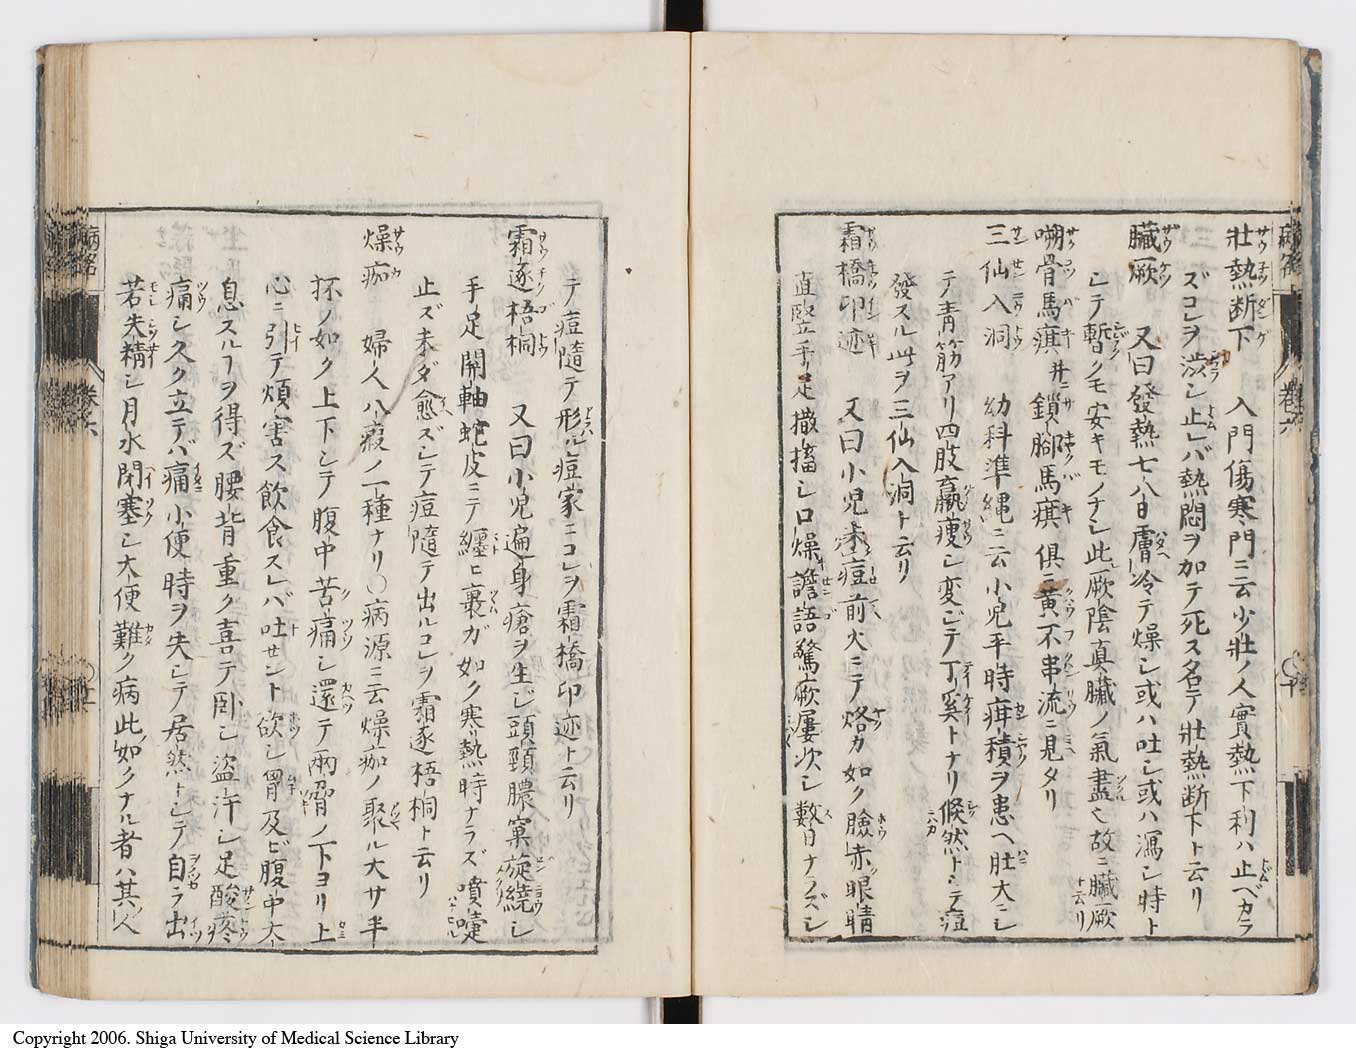 壮熱断下　入門傷寒門ニ云少壮ノ人實熱下利ハ止ベカラ
ズコレヲ渋シ止レバ熱悶ヲ加テ死ス名テ壮熱断下ト云リ
臓厥　又曰發熱七八日膚冷テ燥シ或ハ吐シ或ハ瀉シ時ト
シテ暫クモ安キモノナシ此厥陰真臓ノ氣盡也故ニ臓厥ト云リ
嗍骨馬㾎并ニ鎖脚馬㾎　倶ニ黄不串流ニ見タリ
三仙入洞　幼科準縄ニ云小児平時疳積ヲ患ヘ肚大ニシ
テ青筋アリ四肢羸痩シ変ジテ丁奚トナリ倏然トシテ痘
發スル此ヲ三仙入洞ト云リ
霜橋印迹　又曰小児未痘前火ニテ烙カ如ク臉赤眼睛
直竪手足撒搐シ口燥譫語驚厥屢次シ數日ナラズシ
テ痘隨テ形ル痘家ニコレヲ霜橋印迹ト云リ
霜逐梧桐　又曰小児遍身瘡ヲ生ジ頭頸膿窠旋繞シ
手足開軸蛇皮ニテ纏ヒ裹ガ如ク寒熱時ナラズ噴嚏
止ズ未ダ愈ズシテ痘隨テ出ルコレヲ霜逐梧桐ト云リ
燥痂　婦人八瘕ノ一種ナリ〇病源ニ云燥痂ノ聚ル大サ半
抔ノ如ク上下シテ腹中苦痛シ還テ兩脅ノ下ヨリ上
心ニ引テ煩害ス飲食スレバ吐セント欲シ胃及ビ腹中大
息スルヿヲ得ズ腰背重ク喜テ卧シ盗汗シ足酸疼
痛シ久ク立テバ痛小便時ヲ失シテ居然トシテ自ラ出
若失精シ月水閉塞シ大便難ク病此如クナル者ハ其人
病名
巻六